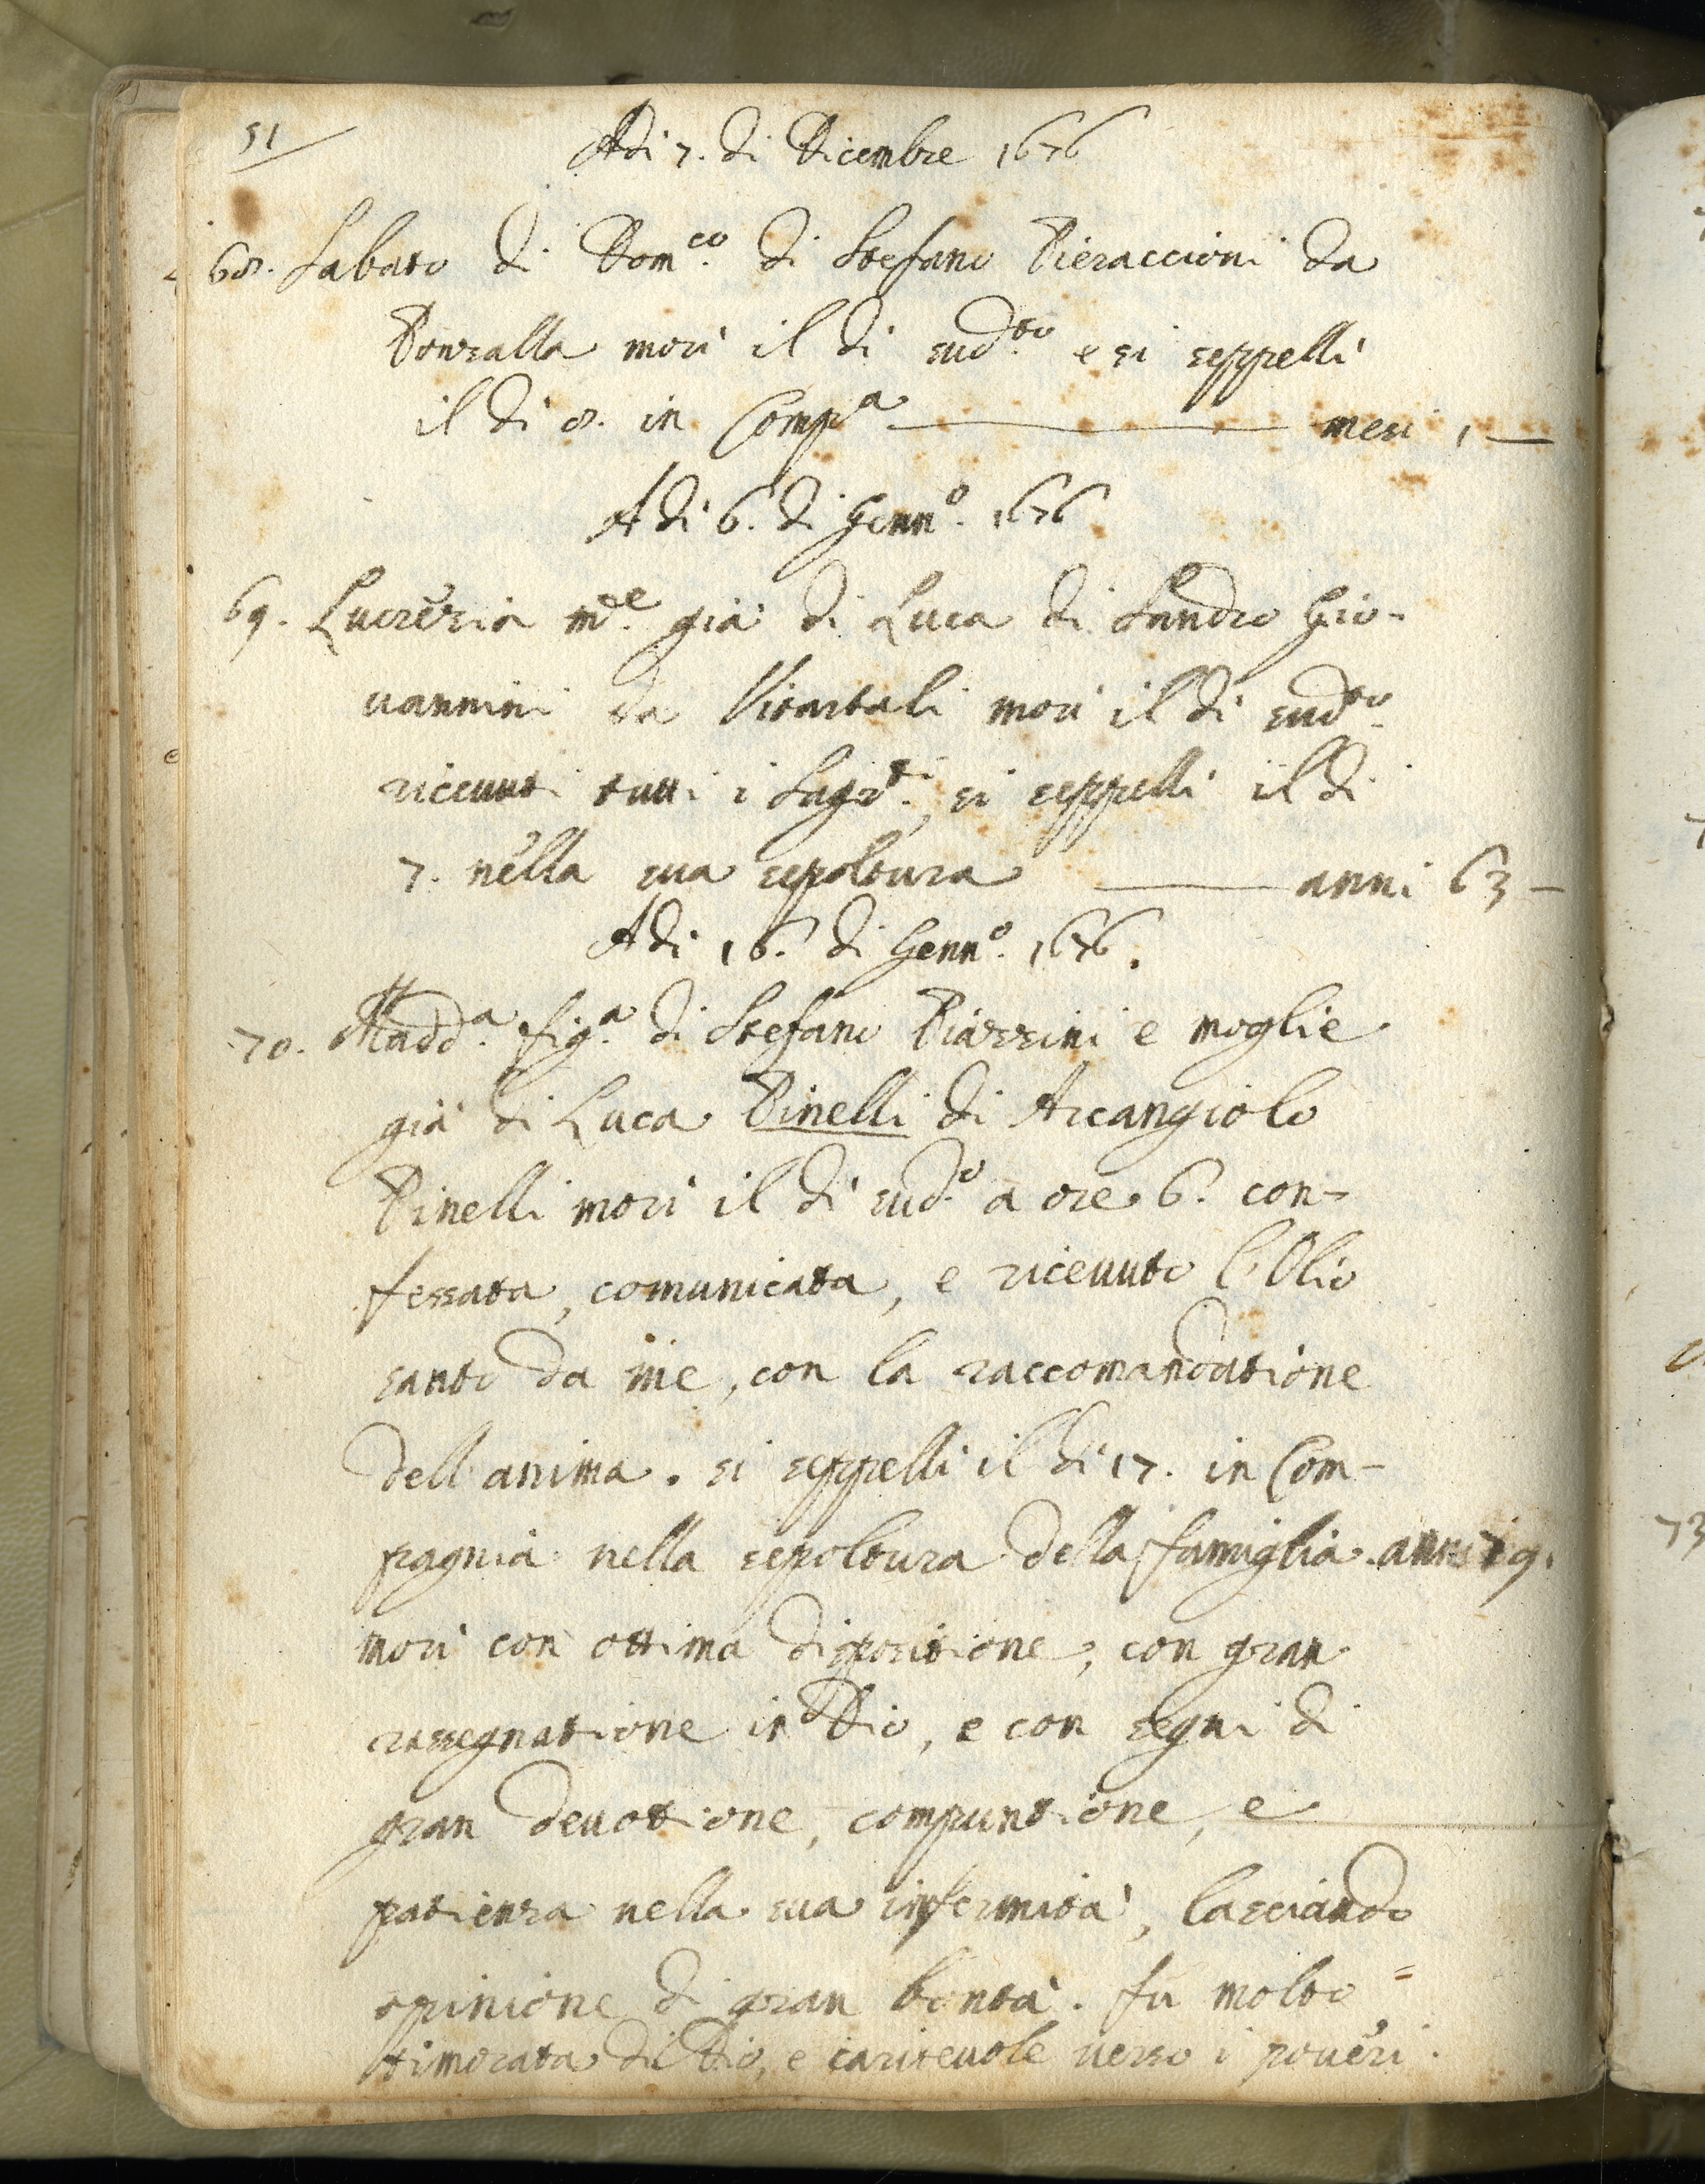 51
Adi 7. di Dicembre 1676
68. Sabato di Dom.co di Stefano Pieraccioni da
Ponzalla morì il dì sud.to e si seppellì
il dì 8. in Comp.a ——— mesi 1 —
A dì 6. di Genn.o 1676
69. Lucrezia m.e già di Luca di Sandro Gio-
uannini da Vitartali morì il dì sud.to
riceuuti tutti i Sagr.ti, si seppellì il dì
7. nella sua sepoltura ——— anni 63 —
A dì 16. di Genn.o 1676.
70. Madd.a fig.a di Stefano Piazzini e moglie
già di Luca Pinelli di Arcangiolo
Pinelli morì il dì sud.o a ore 6. con-
fessata, comunicata, e riceuuto l'Olio
santo da me, con la raccomandatione
dell anima. si seppellì il dì 17. in Com-
pagnia nella sepoltura della famiglia. anni 79.
morì con ottima dispositione, con gran
rassegnatione in Dio, e con segni di
gran deuotione, compuntione, e
patienza nella sua infermità, lasciando
opinione di gran bontà. fù molto =
timorata di Dio, e cariteuole uerso i poueri.
73